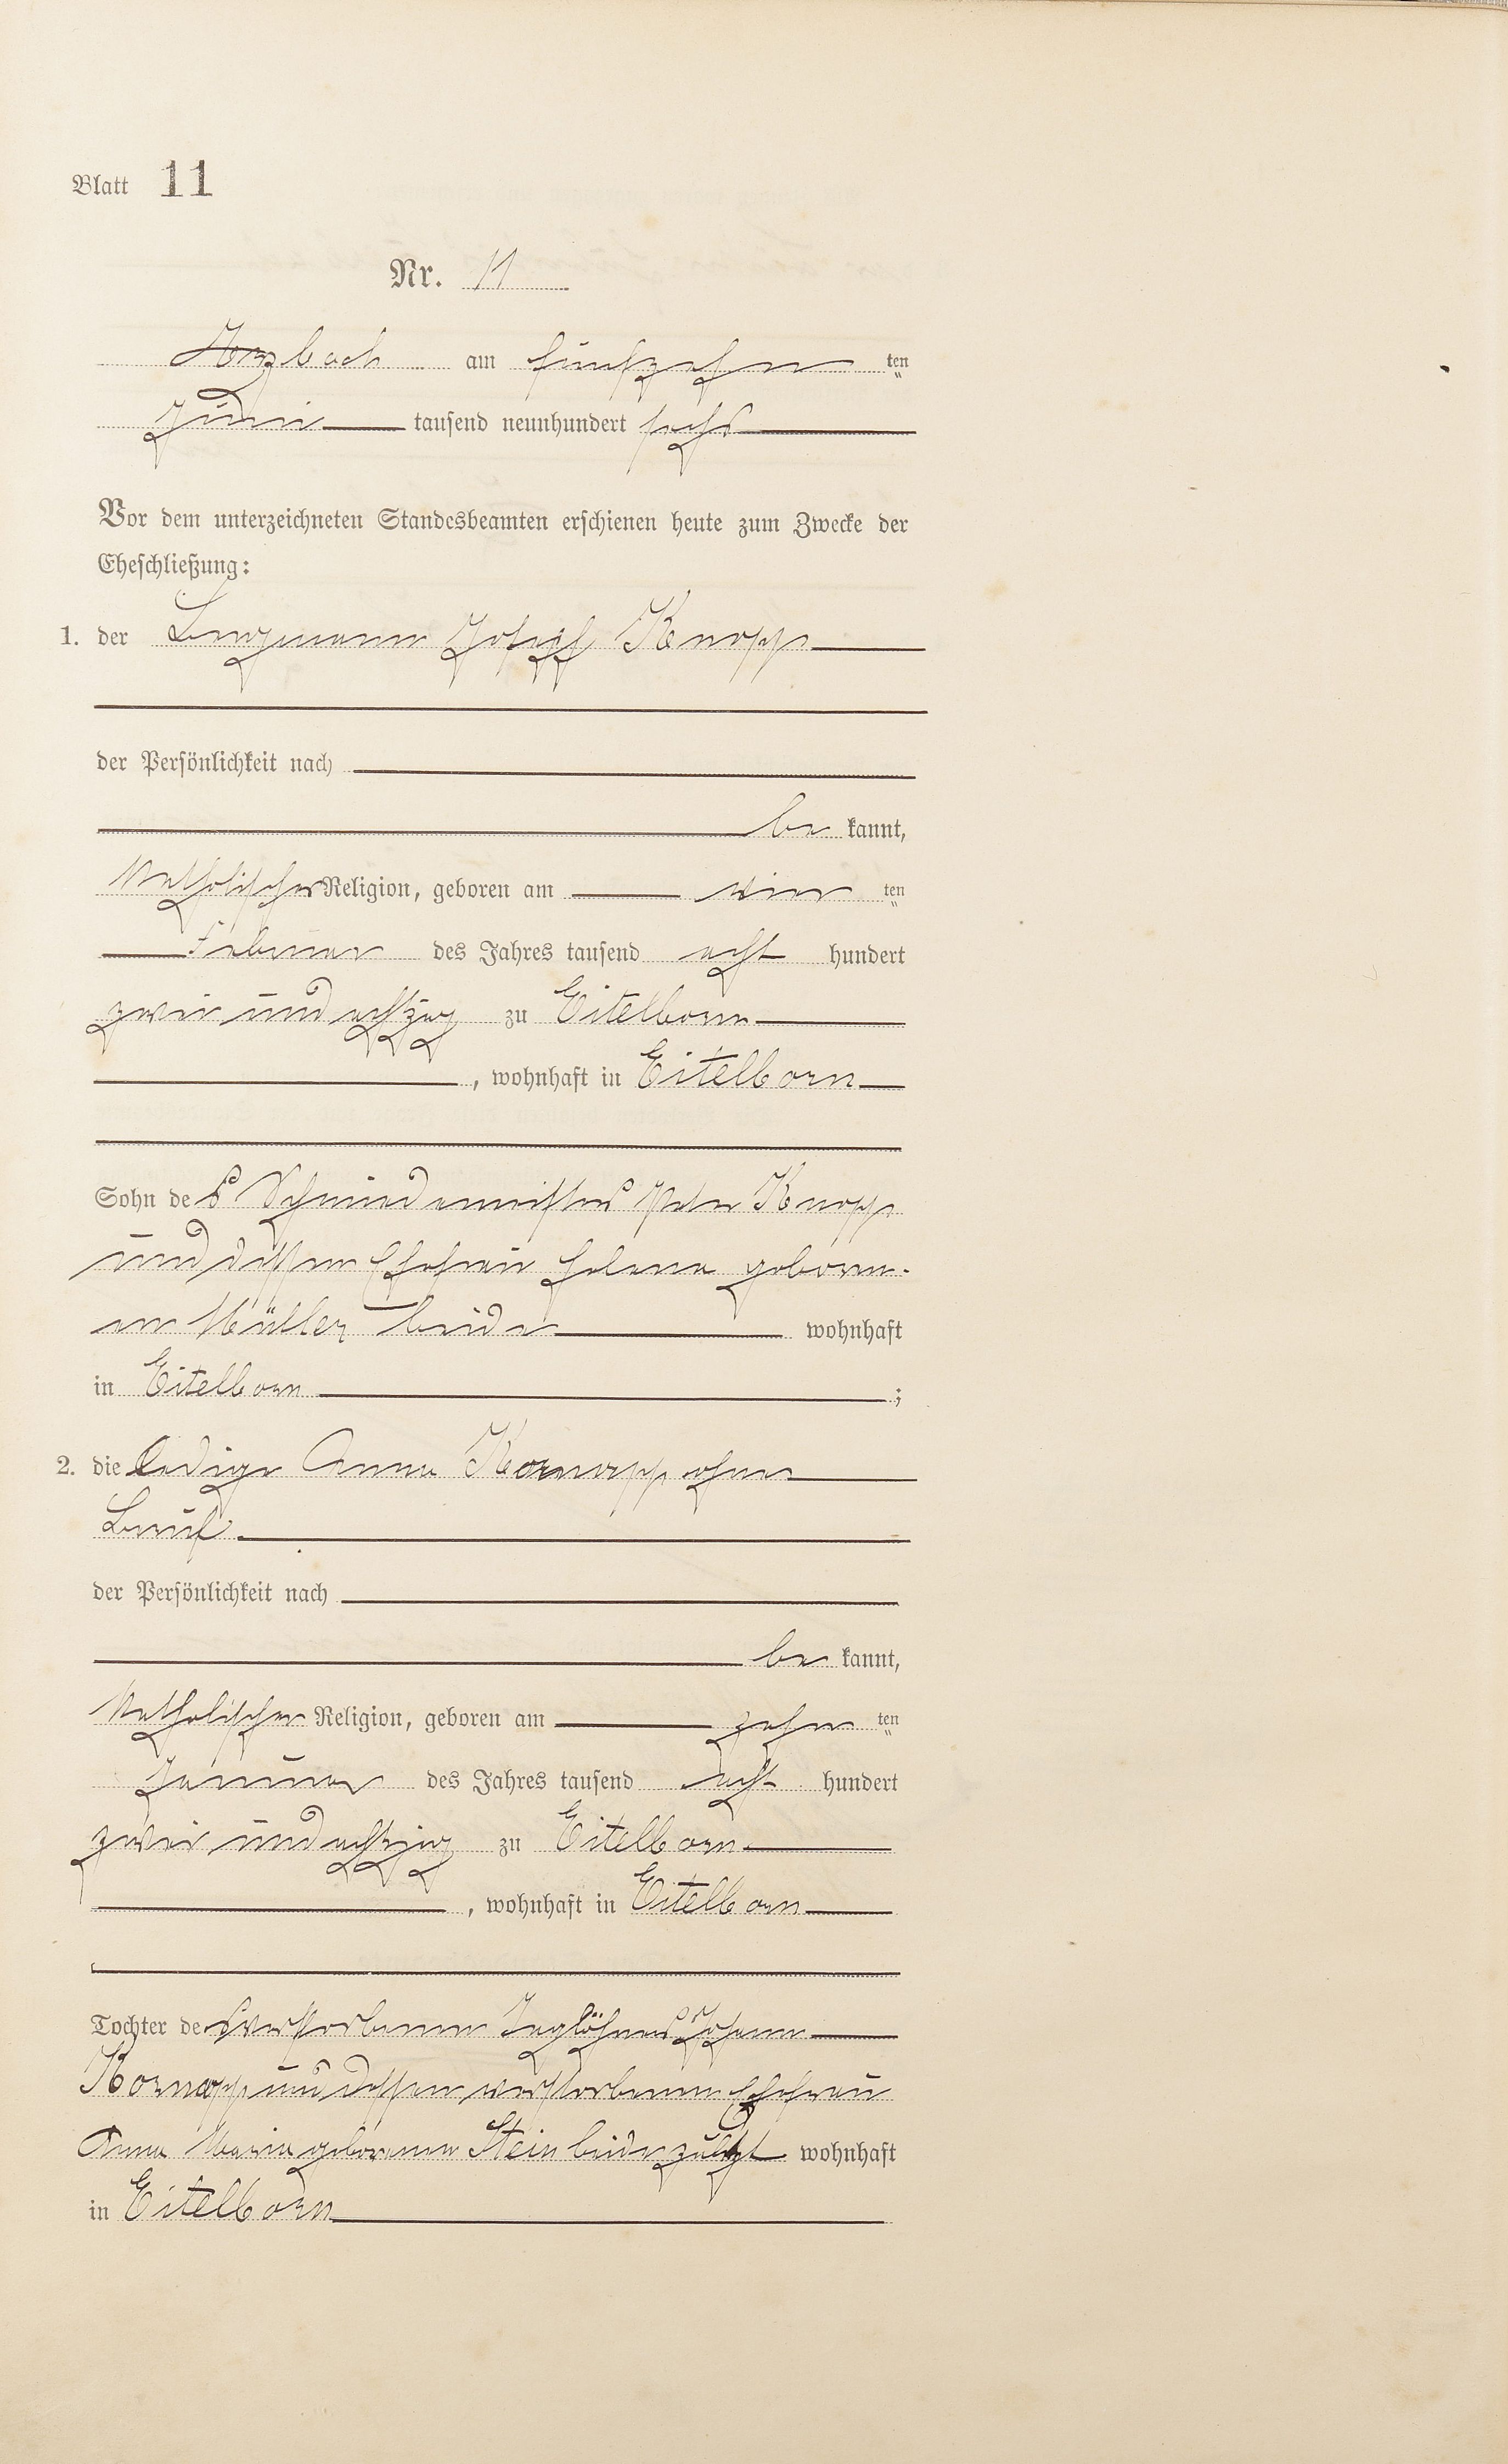 Blatt 11
Nr. 11
Arzbach am fünfzehn ten
Juni tausend neunhundert sechs
Vor dem unterzeichneten Standesbeamten erschienen heute zum Zwecke der
Eheschließung:
1. der Bergmann Josef Knopp
der Persönlichkeit nach
be kannt,
katholischer Religion, geboren am vier ten
Februar des Jahres tausend acht hundert
zwei und achtzig zu Eitelborn
, wohnhaft in Eitelborn
Sohn des Schmiedemeisters Peter Knopp
und dessen Ehefrau Helena geboren-
en Müller beide wohnhaft
in Eitelborn ;
2. die ledige Anna Kornapp ohne
Beruf.
der Persönlichkeit nach
be kannt,
katholischer Religion, geboren am zehn ten
Januar des Jahres tausend acht hundert
zwei und achtzig zu Eitelborn
, wohnhaft in Eitelborn
Tochter des verstorbenen Taglöhners Johann
Kornapp und dessen verstorbenen Ehefrau
Anna Maria geborenen Stein beide zuletzt wohnhaft
in Eitelborn